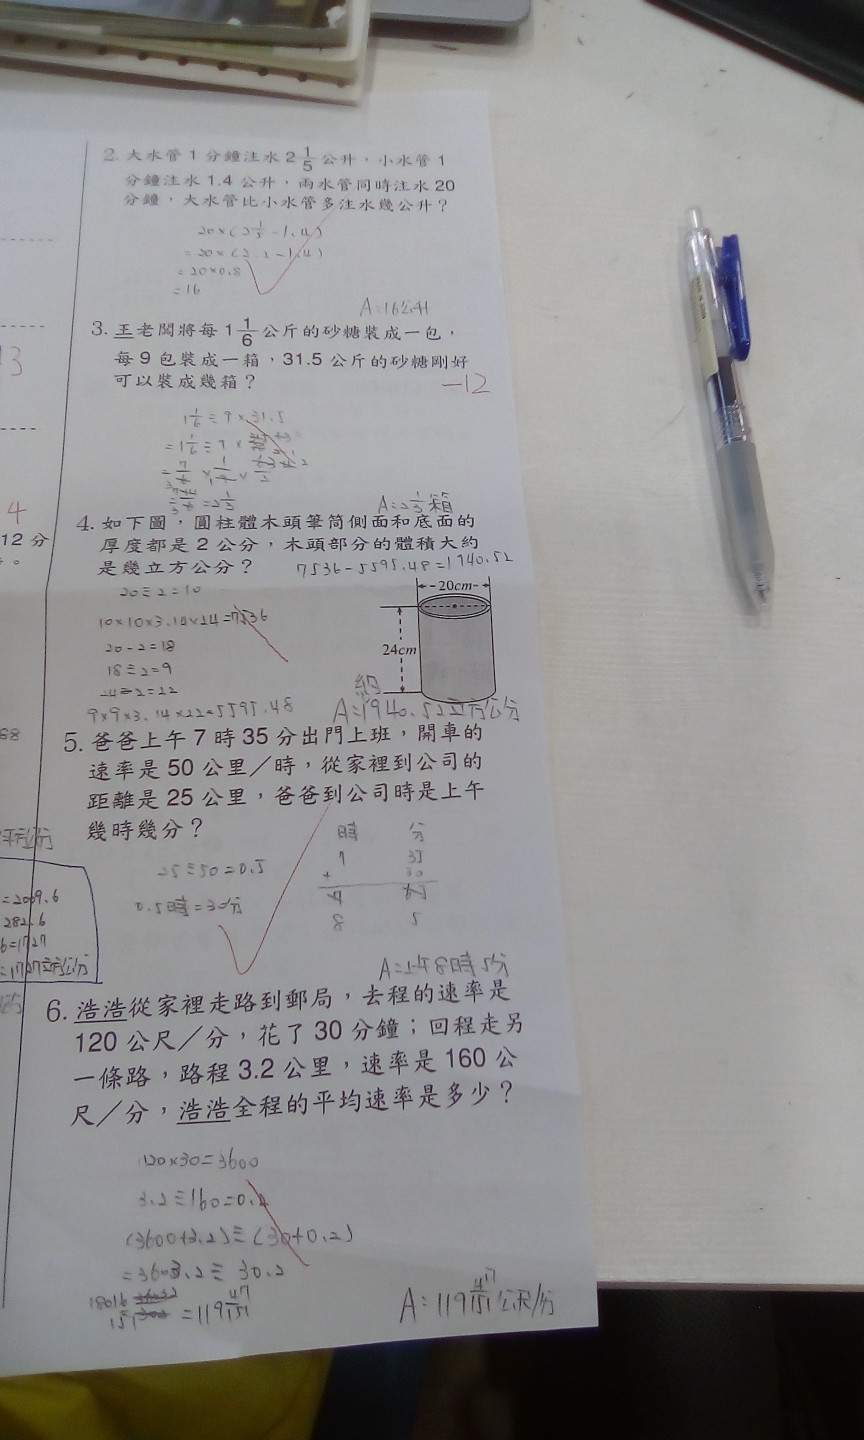 2. 大水管1分鐘注水2 1/5 公升，小水管1
分鐘注水1.4公升，兩水管同時注水20
分鐘，大水管比小水管多注水幾公升？
20×(2 1/5 - 1.4)
=20×(2.2-1.4)
=20×0.8
=16
A=16公升
3. 王老闆將每1 1/6 公斤的砂糖裝成一包，
每9包裝成一箱，31.5公斤的砂糖剛好
可以裝成幾箱？
-12
13
1 1/6 ÷ 9 × 31.5
=1 1/6 ÷ 9 ×
=2 1/3
A=2 1/3 箱
4
12分
4. 如下圖，圓柱體木頭筆筒側面和底面的
厚度都是2公分，木頭部分的體積大約
是幾立方公分？
7536-5595.48=1940.52
20÷2=10
20cm
10×10×3.14×24=7536
20-2=18
24cm
18÷2=9
24-2=22
9×9×3.14×22=5595.48
約
A=1940.52立方公分
68
5. 爸爸上午7時35分出門上班，開車的
速率是50公里／時，從家裡到公司的
距離是25公里，爸爸到公司時是上午
幾時幾分？
平方公分
時 分
25÷50=0.5
7 35
+ 30
0.5時=30分
8 5
=2009.6
282.6
6=1727
=1727立方公分
A=上午8時5分
6. 浩浩從家裡走路到郵局，去程的速率是
120公尺／分，花了30分鐘；回程走另
一條路，路程3.2公里，速率是160公
尺／分，浩浩全程的平均速率是多少？
120×30=3600
3.2÷160=0.2
(3600+3.2)÷(30+0.2)
=3603.2÷30.2
18016
151
=119 47/151
A=119 47/151 公尺/分